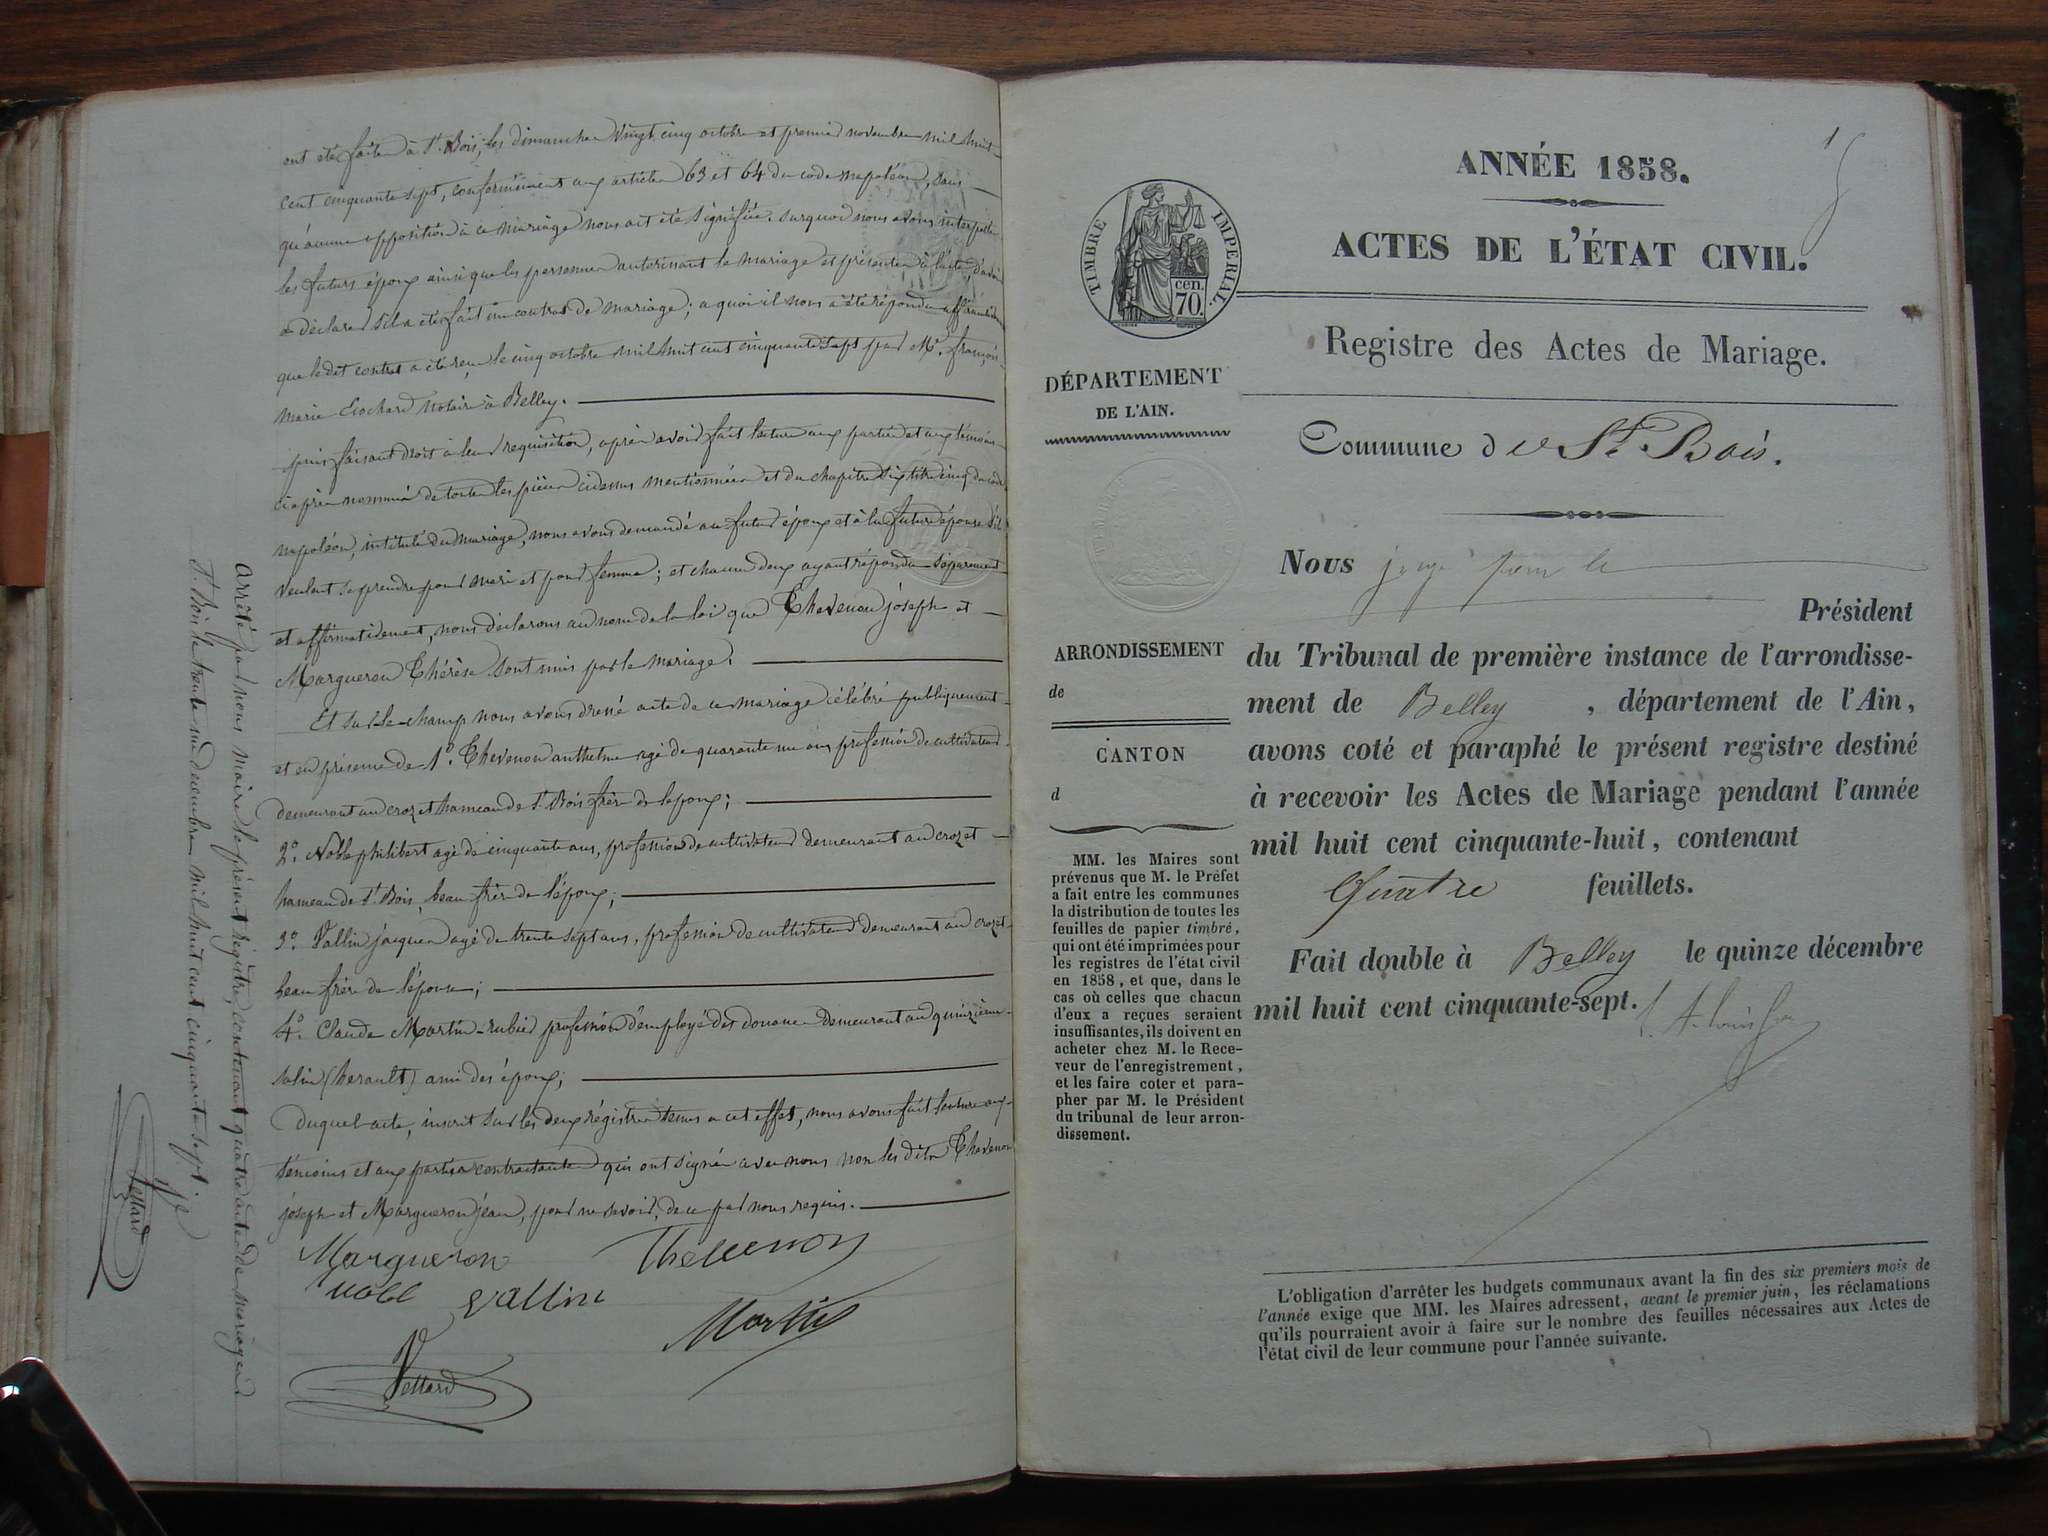 ont été faites à St. Bois, les dimanches vingt cinq octobre et premier novembre mil huit
cent cinquante sept, conformément aux articles 63 et 64 du code napoléon, sans
qu'aucune opposition à ce mariage nous ait été signifiée. Sur quoi nous avons interpellé
les futurs époux ainsi que les personnes autorisant le mariage et présentes à l'acte, d'avoir
à déclarer s'il a été fait un contrat de mariage; a quoi il nous a été répondu affirmativement
que le dit contrat a été reçu le cinq octobre mil huit cent cinquante sept par Me. françois
Marie Crochard Notaire à Belley.
puis faisant droit à leur réquisition, après avoir fait lecture aux parties et aux témoins
ci après nommés de toutes les pièces ci dessus mentionnées et du chapitre six titre cinq du code
napoléon, intitulé du mariage, nous avons demandé au futur époux et à la future épouse s'ils
veulent se prendre pour mari et pour femme; et chacun d'eux ayant répondu séparément
et affirmativement, nous déclarons au nom de la loi que Thevenon joseph et
Margueron Thérèse sont unis par le mariage.
Et sur le champ nous avons dressé acte de ce mariage célébré publiquement
et en présence de 1o. Thevenon anthelme agé de quarante un ans profession de cultivateur
demeurant au crozet hameau de St. Bois frère de l'époux;
2o. Noble philibert agé de cinquante ans, profession de cultivateur demeurant au crozet
hameau de St. Bois, beau frère de l'époux;
3o. Vallin jacques agé de trente sept ans, profession de cultivateur demeurant au crozet
beau frère de l'épouse;
4o. Claude Martin-rubis profession d'employé des douanes demeurant au quinzième
salin (herault) ami des époux;
Duquel acte, inscrit sur les deux régistres tenus a cet effet, nous avons fait lecture aux
témoins et aux parties contractantes qui ont signés avec nous non les dits Thevenon
joseph et Margueron jean, pour ne savoir, de ce par nous requis.
Margueron Thevenon
noble vallin
Martin
Vettard
arrêté par nous maire le présent régistre, contenant quatre actes de mariages
St. Bois le trente un décembre mil huit cent cinquante sept.
Vettard
1
ANNÉE 1858.
ACTES DE L'ÉTAT CIVIL.
TIMBRE IMPÉRIAL.
cen.
70.
Registre des Actes de Mariage.
DÉPARTEMENT
DE L'AIN.
Commune de St. Bois.
Nous juge pour le
Président
ARRONDISSEMENT
de
CANTON
d
du Tribunal de première instance de l'arrondisse-
ment de Belley, département de l'Ain,
avons coté et paraphé le présent registre destiné
à recevoir les Actes de Mariage pendant l'année
mil huit cent cinquante-huit, contenant
Quatre feuillets.
Fait double à Belley le quinze décembre
mil huit cent cinquante-sept.
MM. les Maires sont
prévenus que M. le Préfet
a fait entre les communes
la distribution de toutes les
feuilles de papier timbré,
qui ont été imprimées pour
les registres de l'état civil
en 1858, et que, dans le
cas où celles que chacun
d'eux a reçues seraient
insuffisantes, ils doivent en
acheter chez M. le Rece-
veur de l'enregistrement,
et les faire coter et para-
pher par M. le Président
du tribunal de leur arron-
dissement.
L'obligation d'arrêter les budgets communaux avant la fin des six premiers mois de
l'année exige que MM. les Maires adressent, avant le premier juin, les réclamations
qu'ils pourraient avoir à faire sur le nombre des feuilles nécessaires aux Actes de
l'état civil de leur commune pour l'année suivante.